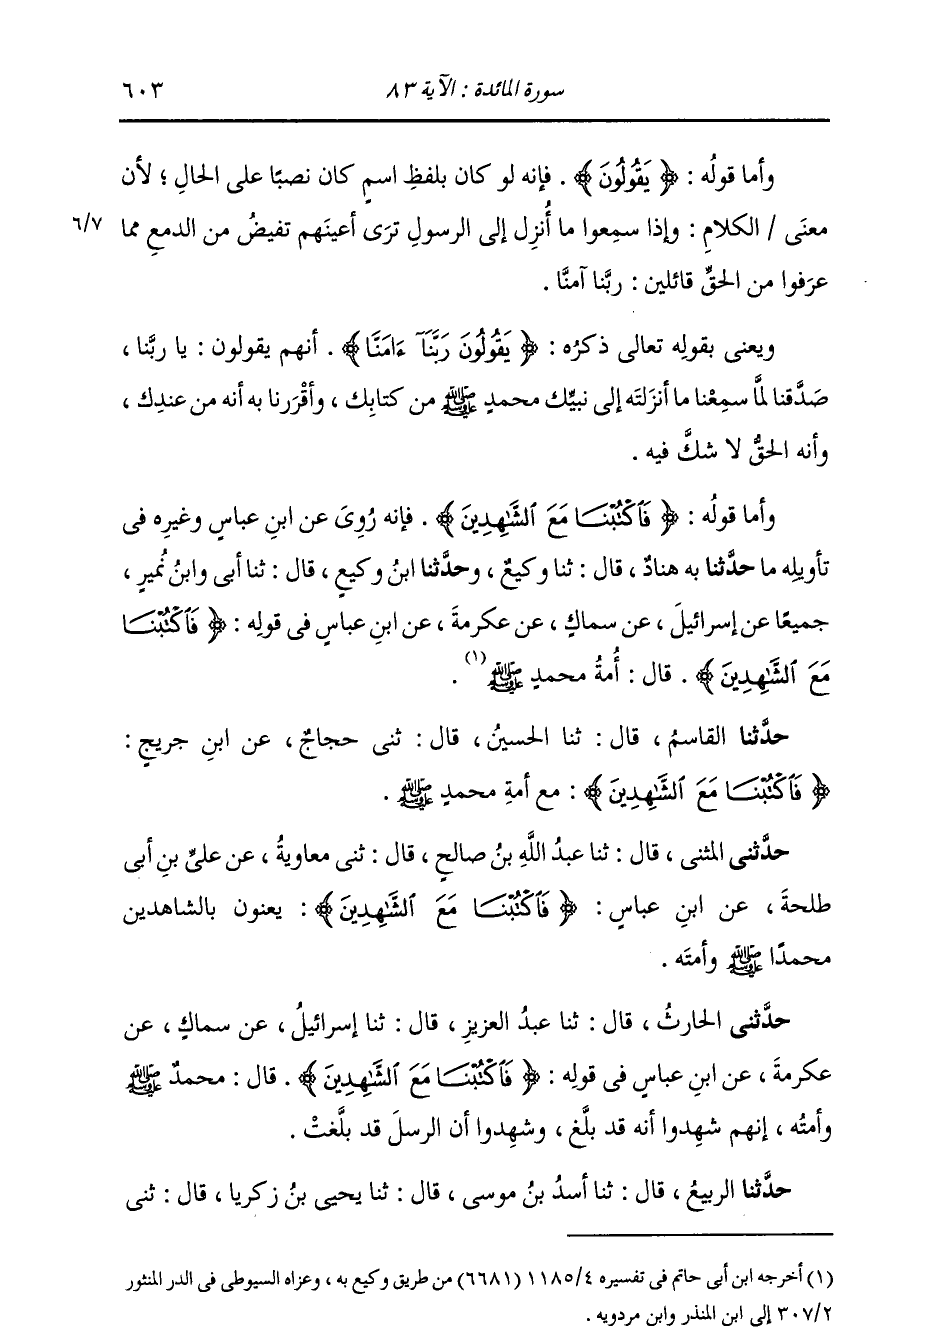 سورة المائدة : الآية ٨٣ ٦٠٣
وأما قولُه : ﴿ يَقُولُونَ ﴾ . فإنه لو كان بلفظِ اسمٍ كان نصبًا على الحالِ ؛ لأن
معنَى / الكلامِ : وإذا سمِعوا ما أُنزِل إلى الرسولِ ترَى أعينَهم تفيضُ من الدمعِ مما ٦/٧
عرَفوا من الحقِّ قائلين : ربَّنا آمنَّا .
ويعنى بقولِه تعالى ذكرُه : ﴿ يَقُولُونَ رَبَّنَآ ءَامَنَّا ﴾ . أنهم يقولون : يا ربَّنا ،
صَدَّقنا لمَّا سمِعْنا ما أنزَلتَه إلى نبيِّك محمدٍ ﷺ من كتابِك ، وأقْرَرنا به أنه من عندِك ،
وأنه الحقُّ لا شكَّ فيه .
وأما قولُه : ﴿ فَٱكْتُبْنَا مَعَ ٱلشَّٰهِدِينَ ﴾ . فإنه رُوِىَ عن ابنِ عباسٍ وغيرِه فى
تأويلِه ما حدَّثنا به هنادٌ ، قال : ثنا وكيعٌ ، وحدَّثنا ابنُ وكيعٍ ، قال : ثنا أبى وابنُ نُميرٍ ،
جميعًا عن إسرائيلَ ، عن سماكٍ ، عن عكرمةَ ، عن ابنِ عباسٍ فى قولِه : ﴿ فَٱكْتُبْنَا
مَعَ ٱلشَّٰهِدِينَ ﴾ . قال : أُمةُ محمدٍ ﷺ(١) .
حدَّثنا القاسمُ ، قال : ثنا الحسينُ ، قال : ثنى حجاجٌ ، عن ابنِ جريجٍ :
﴿ فَٱكْتُبْنَا مَعَ ٱلشَّٰهِدِينَ ﴾ : مع أمةِ محمدٍ ﷺ .
حدَّثنى المثنى ، قال : ثنا عبدُ اللَّهِ بنُ صالحٍ ، قال : ثنى معاويةُ ، عن علىِّ بنِ أبى
طلحةَ ، عن ابنِ عباسٍ : ﴿ فَٱكْتُبْنَا مَعَ ٱلشَّٰهِدِينَ ﴾ : يعنون بالشاهدين
محمدًا ﷺ وأمتَه .
حدَّثنى الحارثُ ، قال : ثنا عبدُ العزيزِ ، قال : ثنا إسرائيلُ ، عن سماكٍ ، عن
عكرمةَ ، عن ابنِ عباسٍ فى قولِه : ﴿ فَٱكْتُبْنَا مَعَ ٱلشَّٰهِدِينَ ﴾ . قال : محمدٌ ﷺ
وأمتُه ، إنهم شهِدوا أنه قد بلَّغ ، وشهِدوا أن الرسلَ قد بلَّغتْ .
حدَّثنا الربيعُ ، قال : ثنا أسدُ بنُ موسى ، قال : ثنا يحيى بنُ زكريا ، قال : ثنى
(١) أخرجه ابن أبى حاتم فى تفسيره ١١٨٥/٤ (٦٦٨١) من طريق وكيع به ، وعزاه السيوطى فى الدر المنثور
٣٠٧/٢ إلى ابن المنذر وابن مردويه .